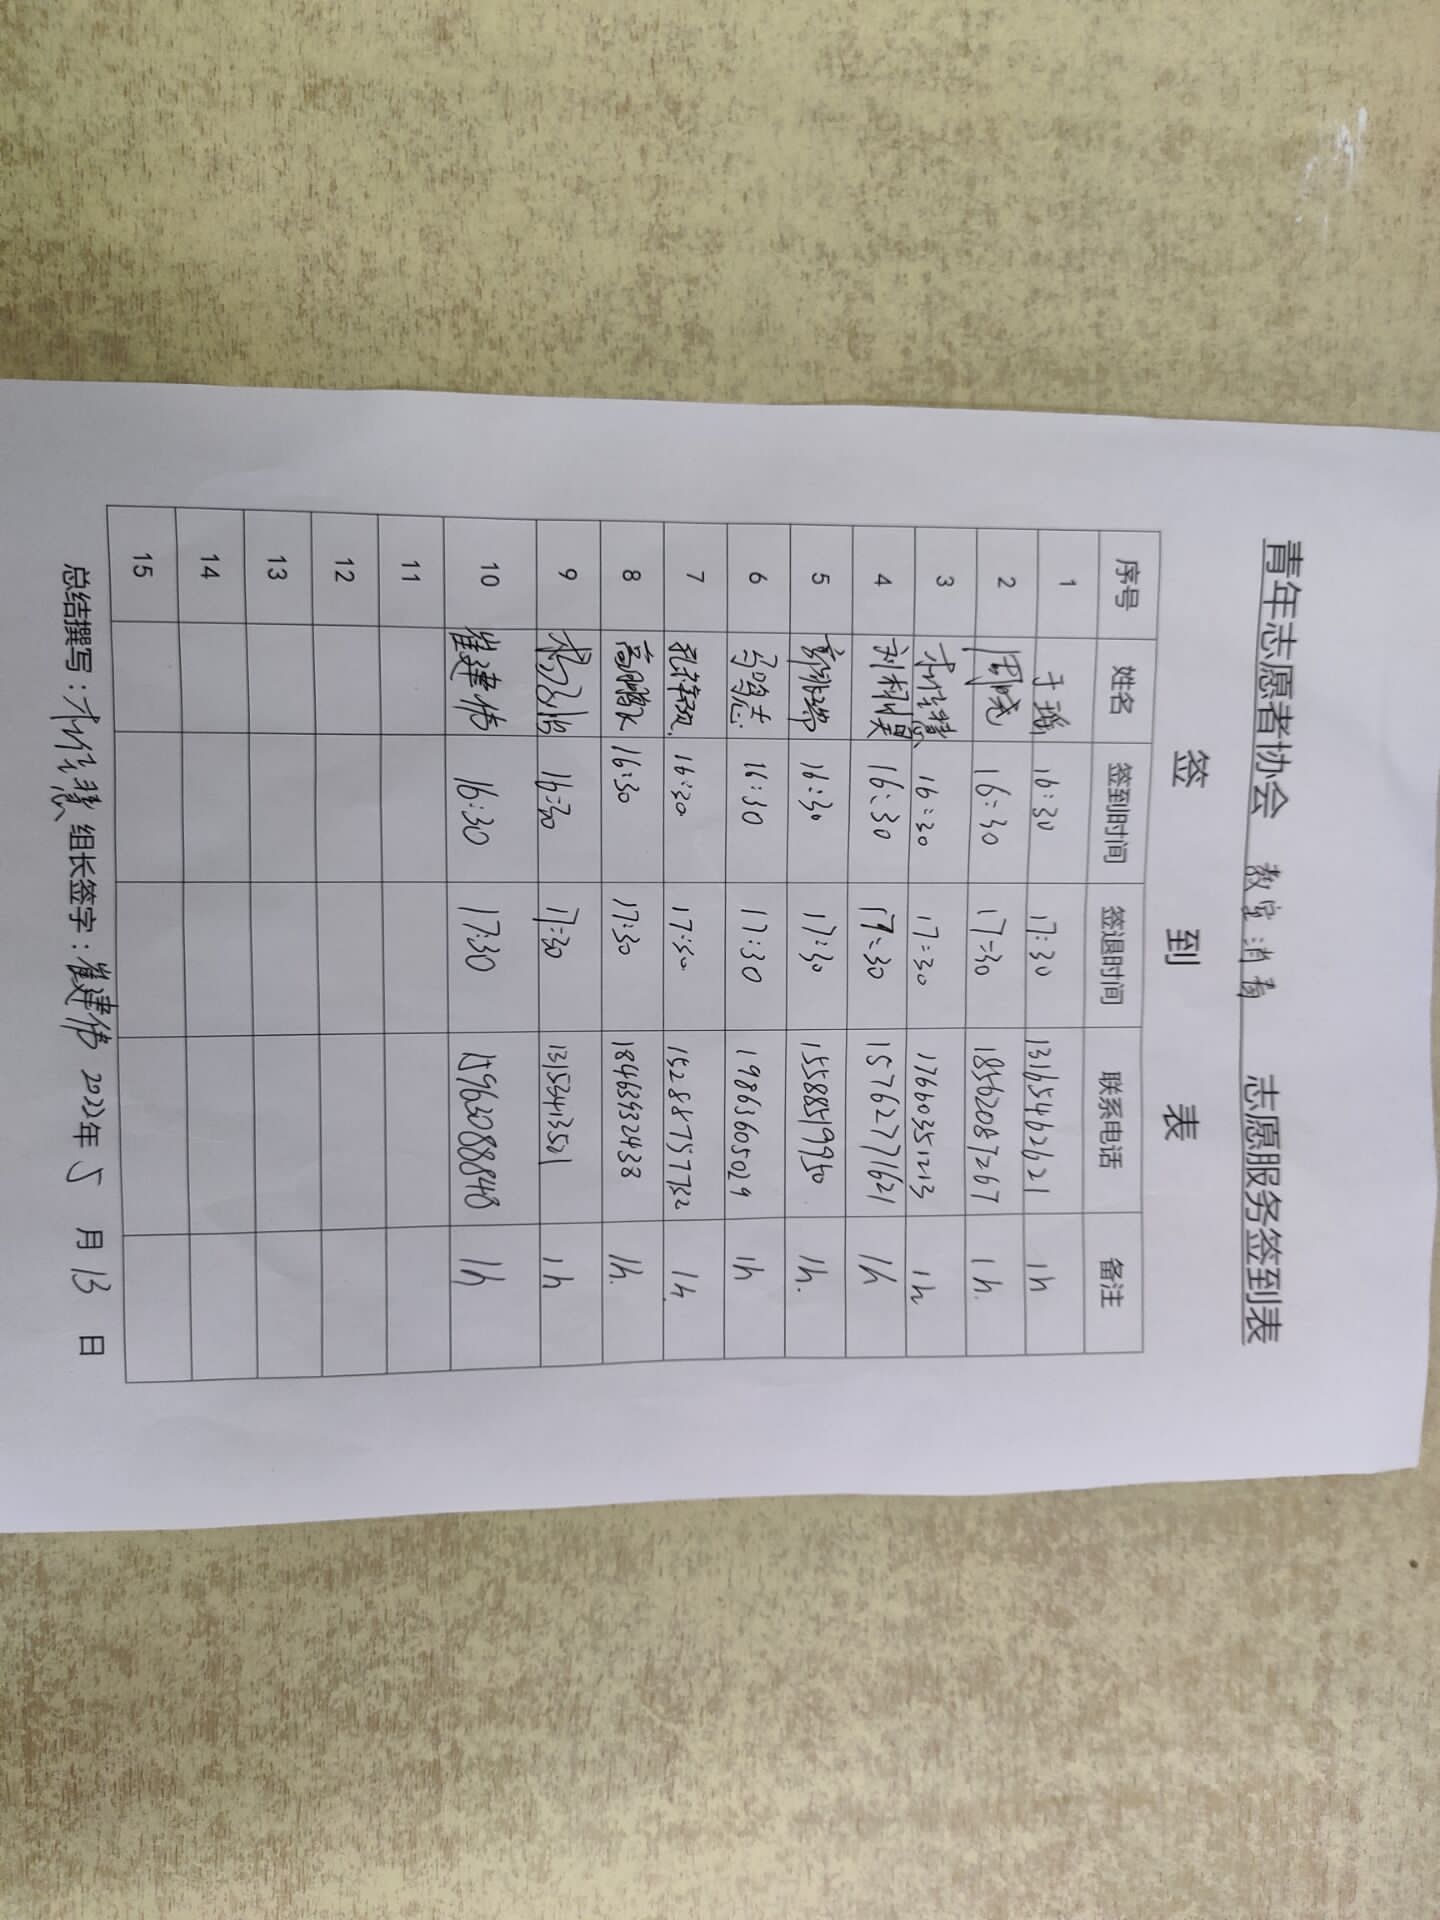 青年志愿者协会 教室消毒 志愿服务签到表
签 到 表
序号 姓名 签到时间 签退时间 联系电话 备注
1 于瑶 16:30 17:30 13165462621 1h
2 周晓 16:30 17:30 18562087267 1h.
3 16:30 17:30 17660351213 1h
4 16:30 17:30 15762771621 1h
5 16:30 17:30 15588519950 1h.
6 16:30 17:30 19863605029 1h
7 16:30 17:30 15288757732 1h.
8 16:30 17:30 18463932438 1h.
9 16:30 17:30 13153413521 1h
10 崔建伟 16:30 17:30 15963088848 1h
11
12
13
14
15
总结撰写: 组长签字:崔建伟 2022年5月13日